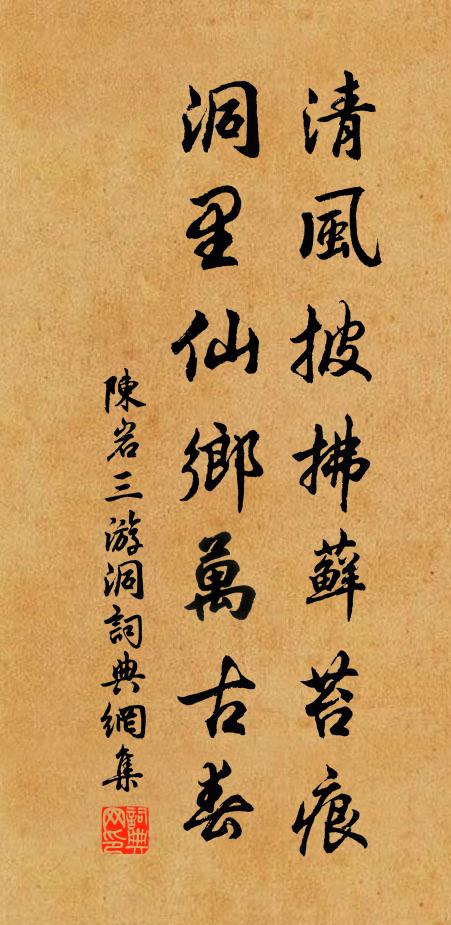 清風披拂蘚苔痕
洞里仙鄉萬古春
陳岩三游洞詞典網集
詞典網印